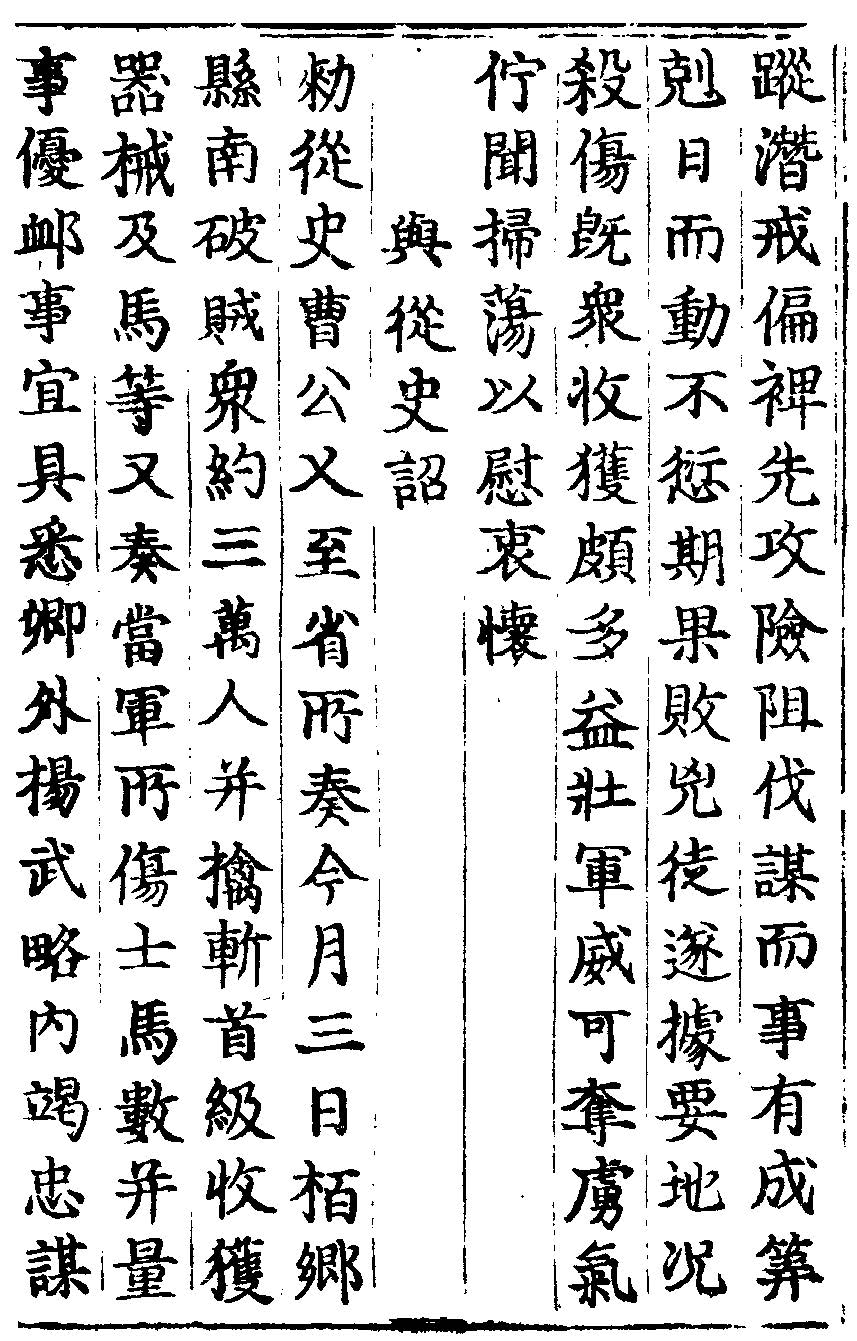 蹤潛戒偏裨先攻險阻伐謀而事有成筭
剋日而動不愆期果敗兇徒遂據要地況
殺傷既衆收獲頗多益壯軍威可奪虜氣
佇聞掃蕩以慰衷懷
與從史詔
勑從史曹公乂至省所奏今月三日栢鄉
縣南破賊衆約三萬人并擒斬首級收獲
器械及馬等又奏當軍所傷士馬數并量
事優卹事宜具悉卿外揚武略内竭忠謀